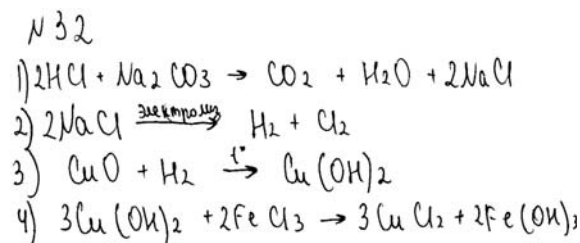 № 32
1) 2HCl + Na2CO3 → CO2 + H2O + 2NaCl
2) 2NaCl электролиз → H2 + Cl2
3) CuO + H2 t° → Cu(OH)2
4) 3Cu(OH)2 + 2FeCl3 → 3CuCl2 + 2Fe(OH)3